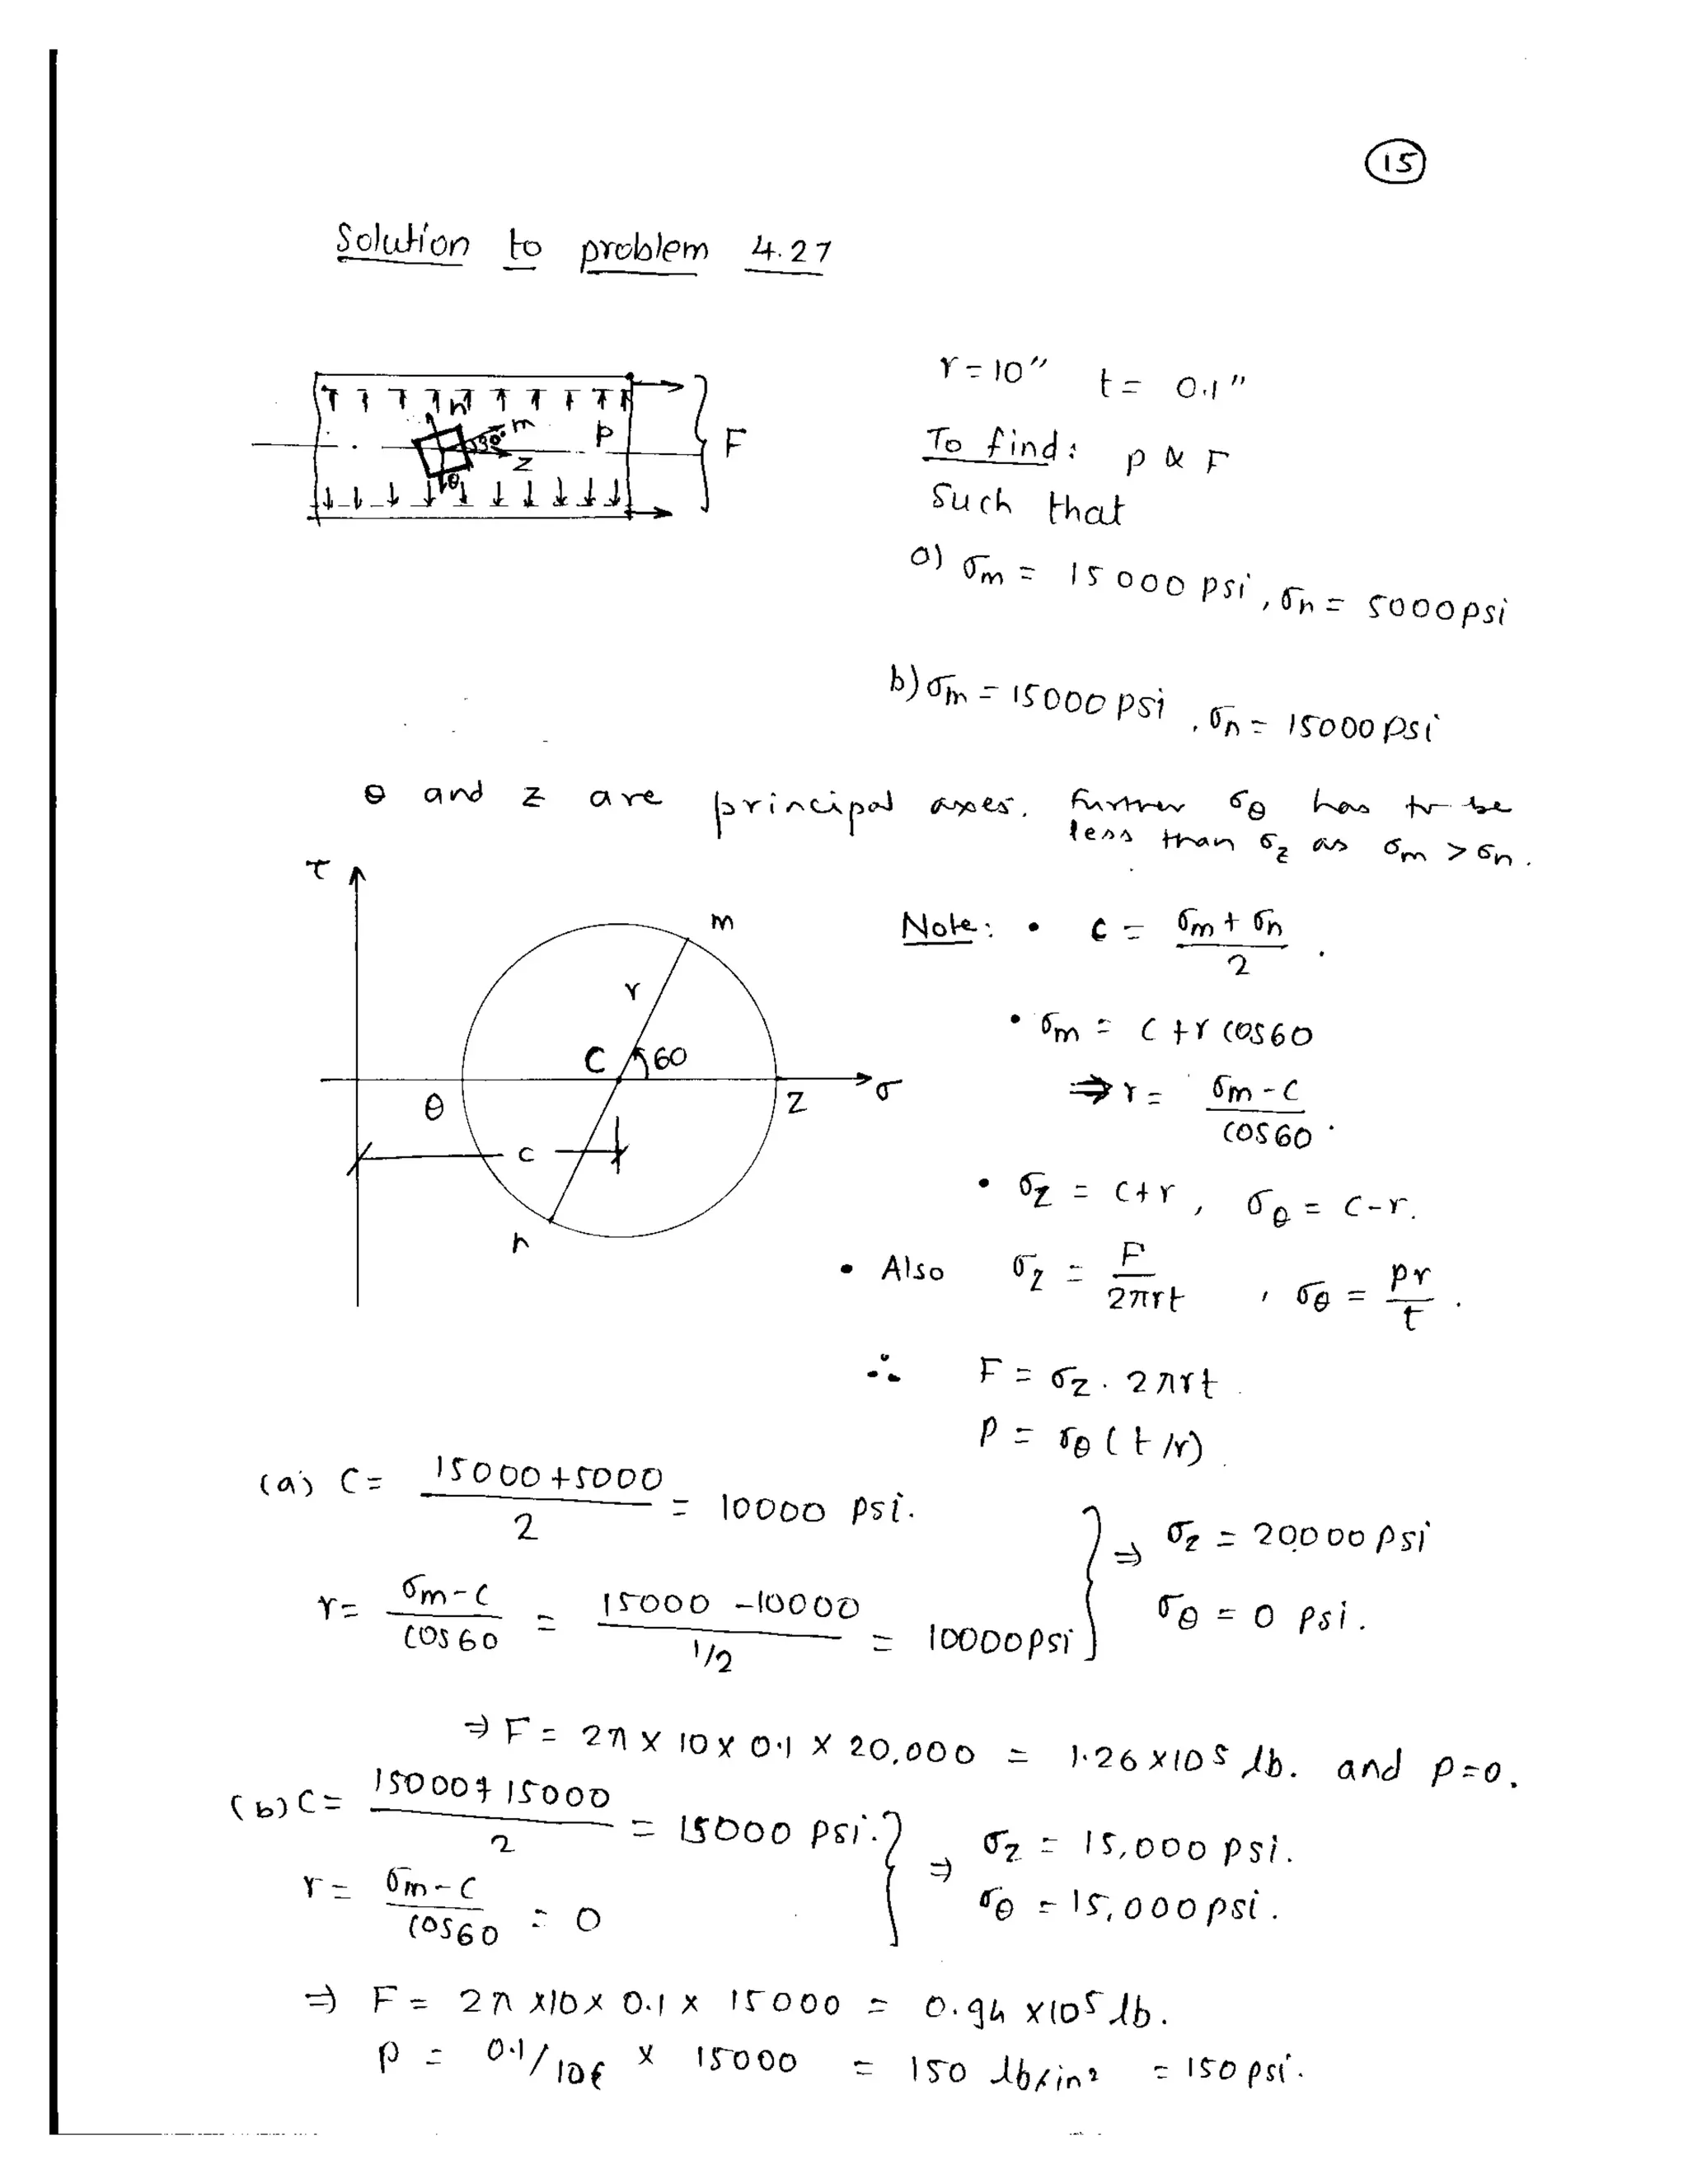 15
Solution to problem 4.27
r = 10" t = 0.1"
n
m
30°
p
F
z
θ
To find: p & F
Such that
a) σm = 15000 psi, σn = 5000psi
b) σm = 15000 psi, σn = 15000 psi
θ and z are principal axes. Further σθ has to be
less than σz as σm > σn.
τ
m
Note: • c = (σm + σn)/2.
r
• σm = C + r cos60
C
60
σ
θ
z
⇒ r = (σm - C)/cos60.
c
• σz = C+r, σθ = C-r.
n
• Also σz = F/2πrt, σθ = pr/t.
∴ F = σz. 2πrt.
P = σθ (t/r).
(a) C = (15000+5000)/2 = 10000 psi.
r = (σm-C)/cos60 = (15000 - 10000)/(1/2) = 10000psi
} ⇒ σz = 20000 psi
σθ = 0 psi.
⇒ F = 2π × 10 × 0.1 × 20,000 = 1.26 × 10⁵ lb. and P=0.
(b) C = (15000+15000)/2 = 15000 psi.
r = (σm-C)/cos60 = 0
} ⇒ σz = 15,000 psi.
σθ = 15,000 psi.
⇒ F = 2π × 10 × 0.1 × 15000 = 0.94 × 10⁵ lb.
p = 0.1/10 × 15000 = 150 lb/in² = 150 psi.